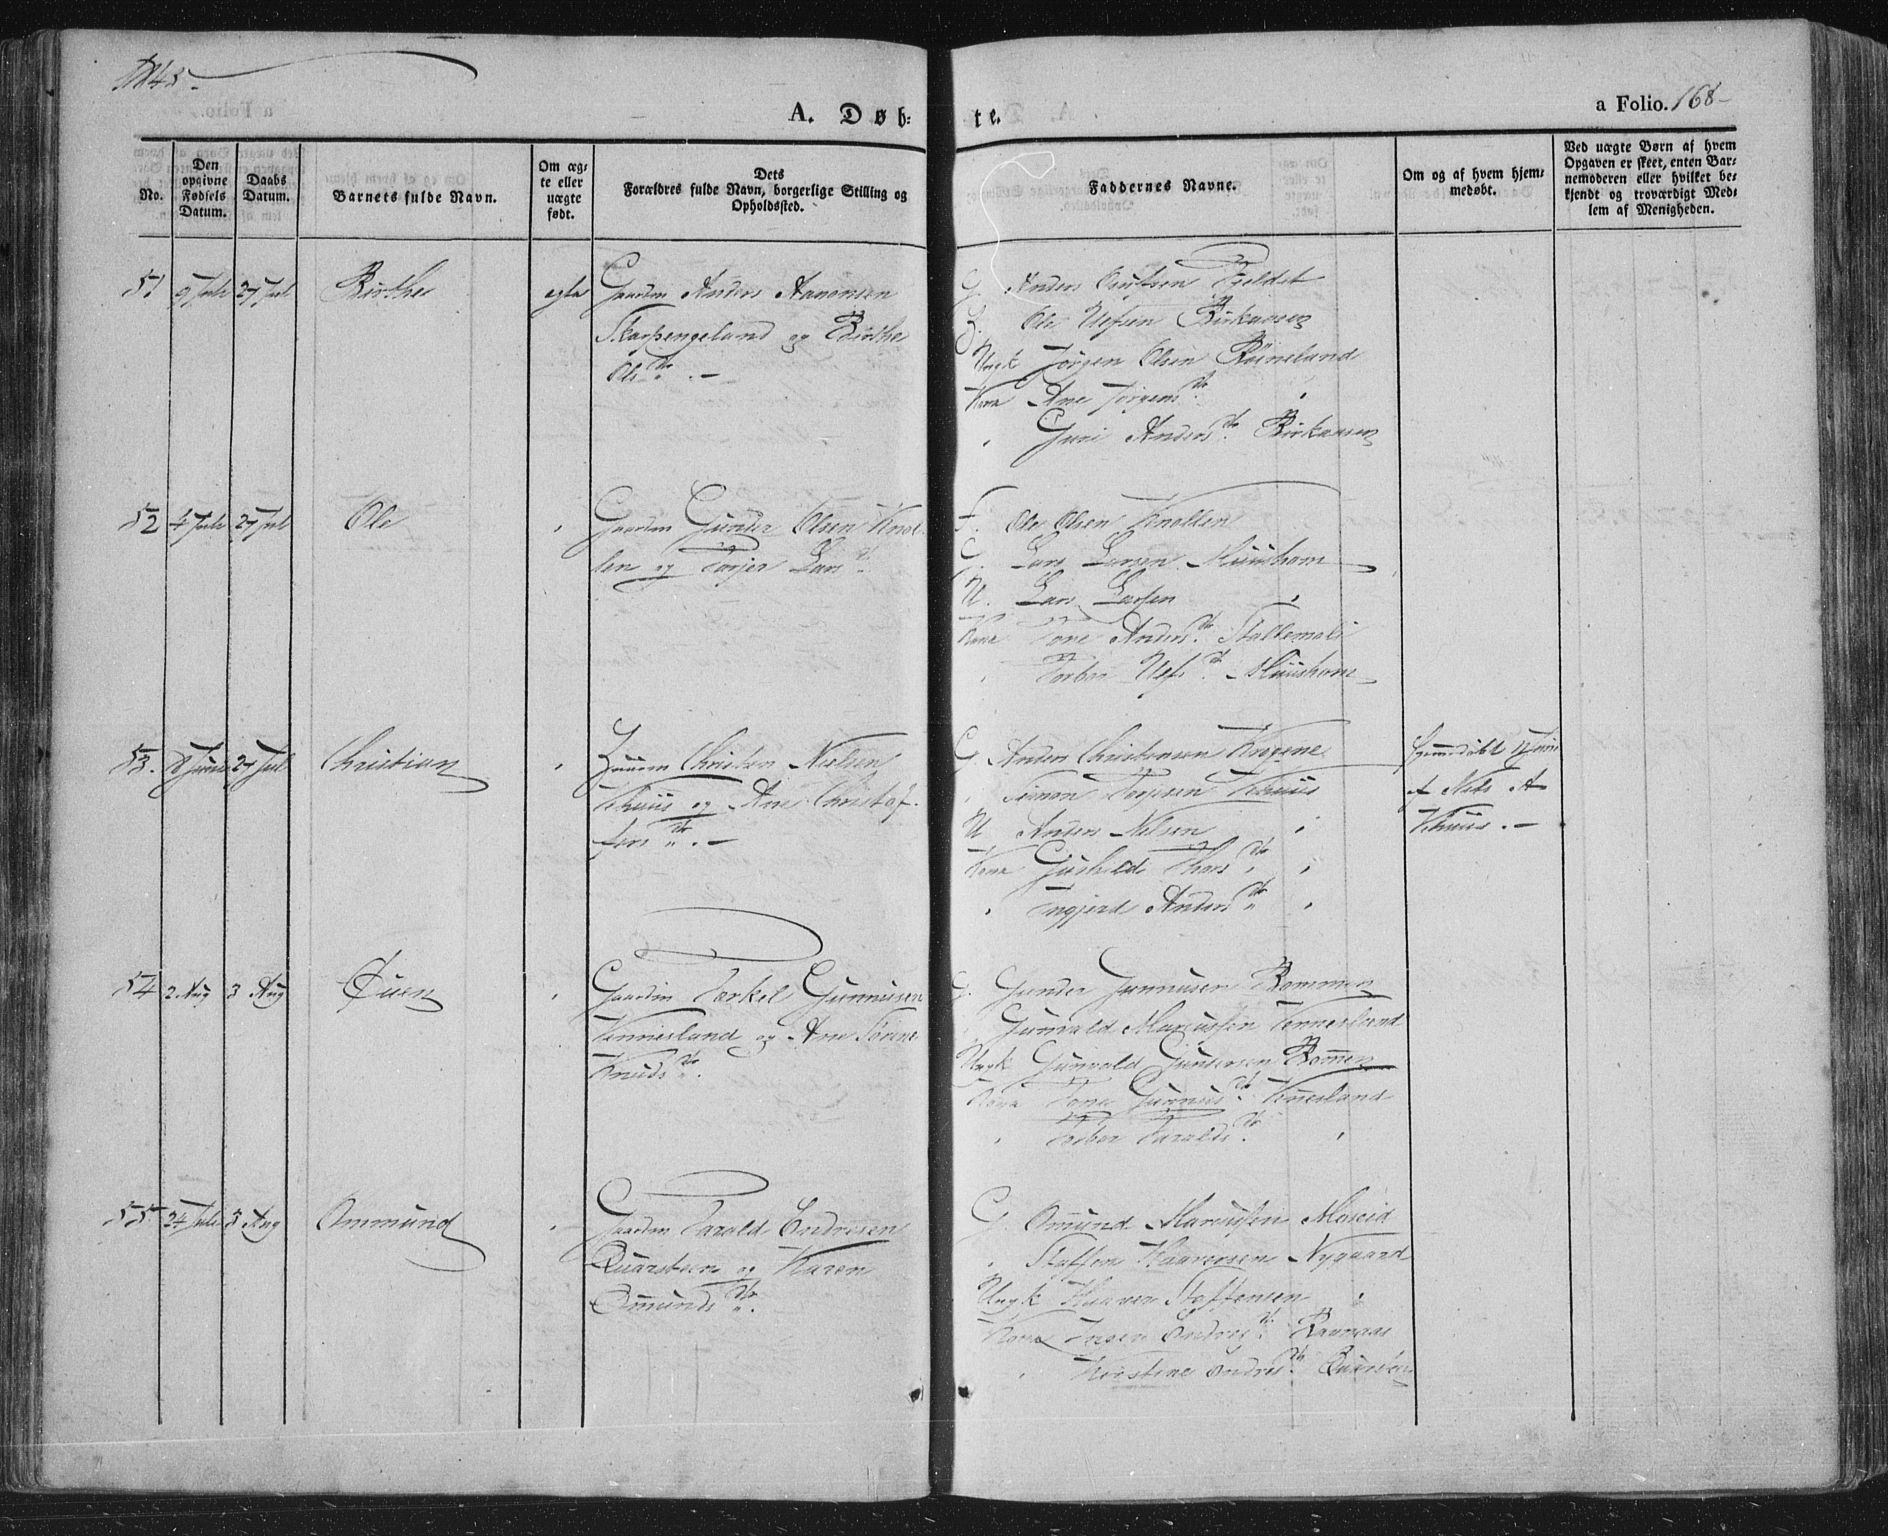 1845.
A. Døb-te.
a Folio. 168
No.
Den opgivne Fødsels Datum.
Daabs Datum.
Barnets fulde Navn.
Om ægte eller uægte født.
Dets Forældres fulde Navn, borgerlige Stilling og Opholdssted.
Faddernes Navne.
Om og af hvem hjemmedøbt.
Ved uægte Børn af hvem Opgaven er skeet, enten Barnemoderen eller hvilket bekjendt og troværdigt Medlem af Menigheden.
51 9 Juli 27 Jul Birthe egte Gaardm Anders Aanonsen
Skarpengeland og Birthe
Ols Dr. –
G. Anders Knutsen Fjeldet
G. Ole Uefsen Birkenes
Ungk Jørgen Olsen Røineland
Kone Ane Jørgens Dr. "
" Guri Anders Dr. Birkenes
52 4 Juli 27 Jul Ole " Gaardm Gunder Olsen Knol
len og Torjer Lars Dr.
F. Ole Olsen Knollen
G. Lars Larsen Muushom
U. Lars Larsen "
Kone Tone Anders Dr. Stallemoli
" Torbor Uefs Dr. Muushom
53. 8 Juni 27 Jul Christian " Huusm Christen Nielsen
Kehuus og Ane Christof
fers Dr. –
G. Anders Christensen
" Simon Kehuus
U Anders Nielsen "
Kone Gunhild Dr. "
" Ingjerd Anders Dr. "
hjemmedøbt Juni
af Niels A
Kehuus. –
54 2 Aug 3 Aug Øuen " Gaardm Terkel Gunnusen
Kennesland og Ane Tonne
Knuds Dr.
G. Gunder Gunnusen Rommen
" Gunvald Marcussen Kennesland
Ungk Gunvald Gundersen Rommen
Kone Tone Gunnus Dr. Kenesland
" Torbor Taralds Dr. "
55 24 Juli 3 Aug Ommund " Gaardm Tarald Endresen
Quarsteen og Karen
Omunds Dr.
G. Omund Marcussen Moseid
" Staffen Haaversen Nygaard
Ungk Haaver Staffensen "
Kone Inger Endres Dr. Ravnaas
" Kirstine Endres Dr. Quarsten